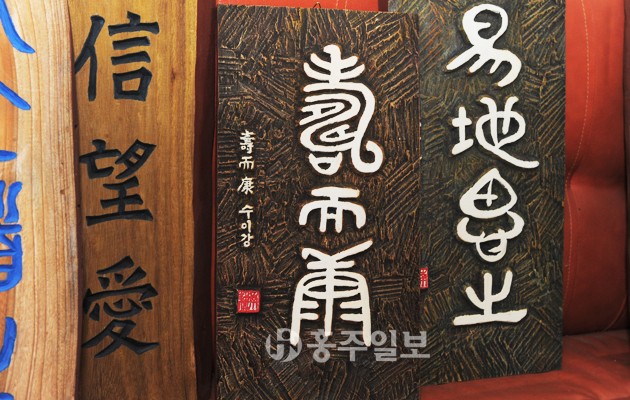 信望愛
壽而康 수이강
壽而康
易地思之
홍주일보